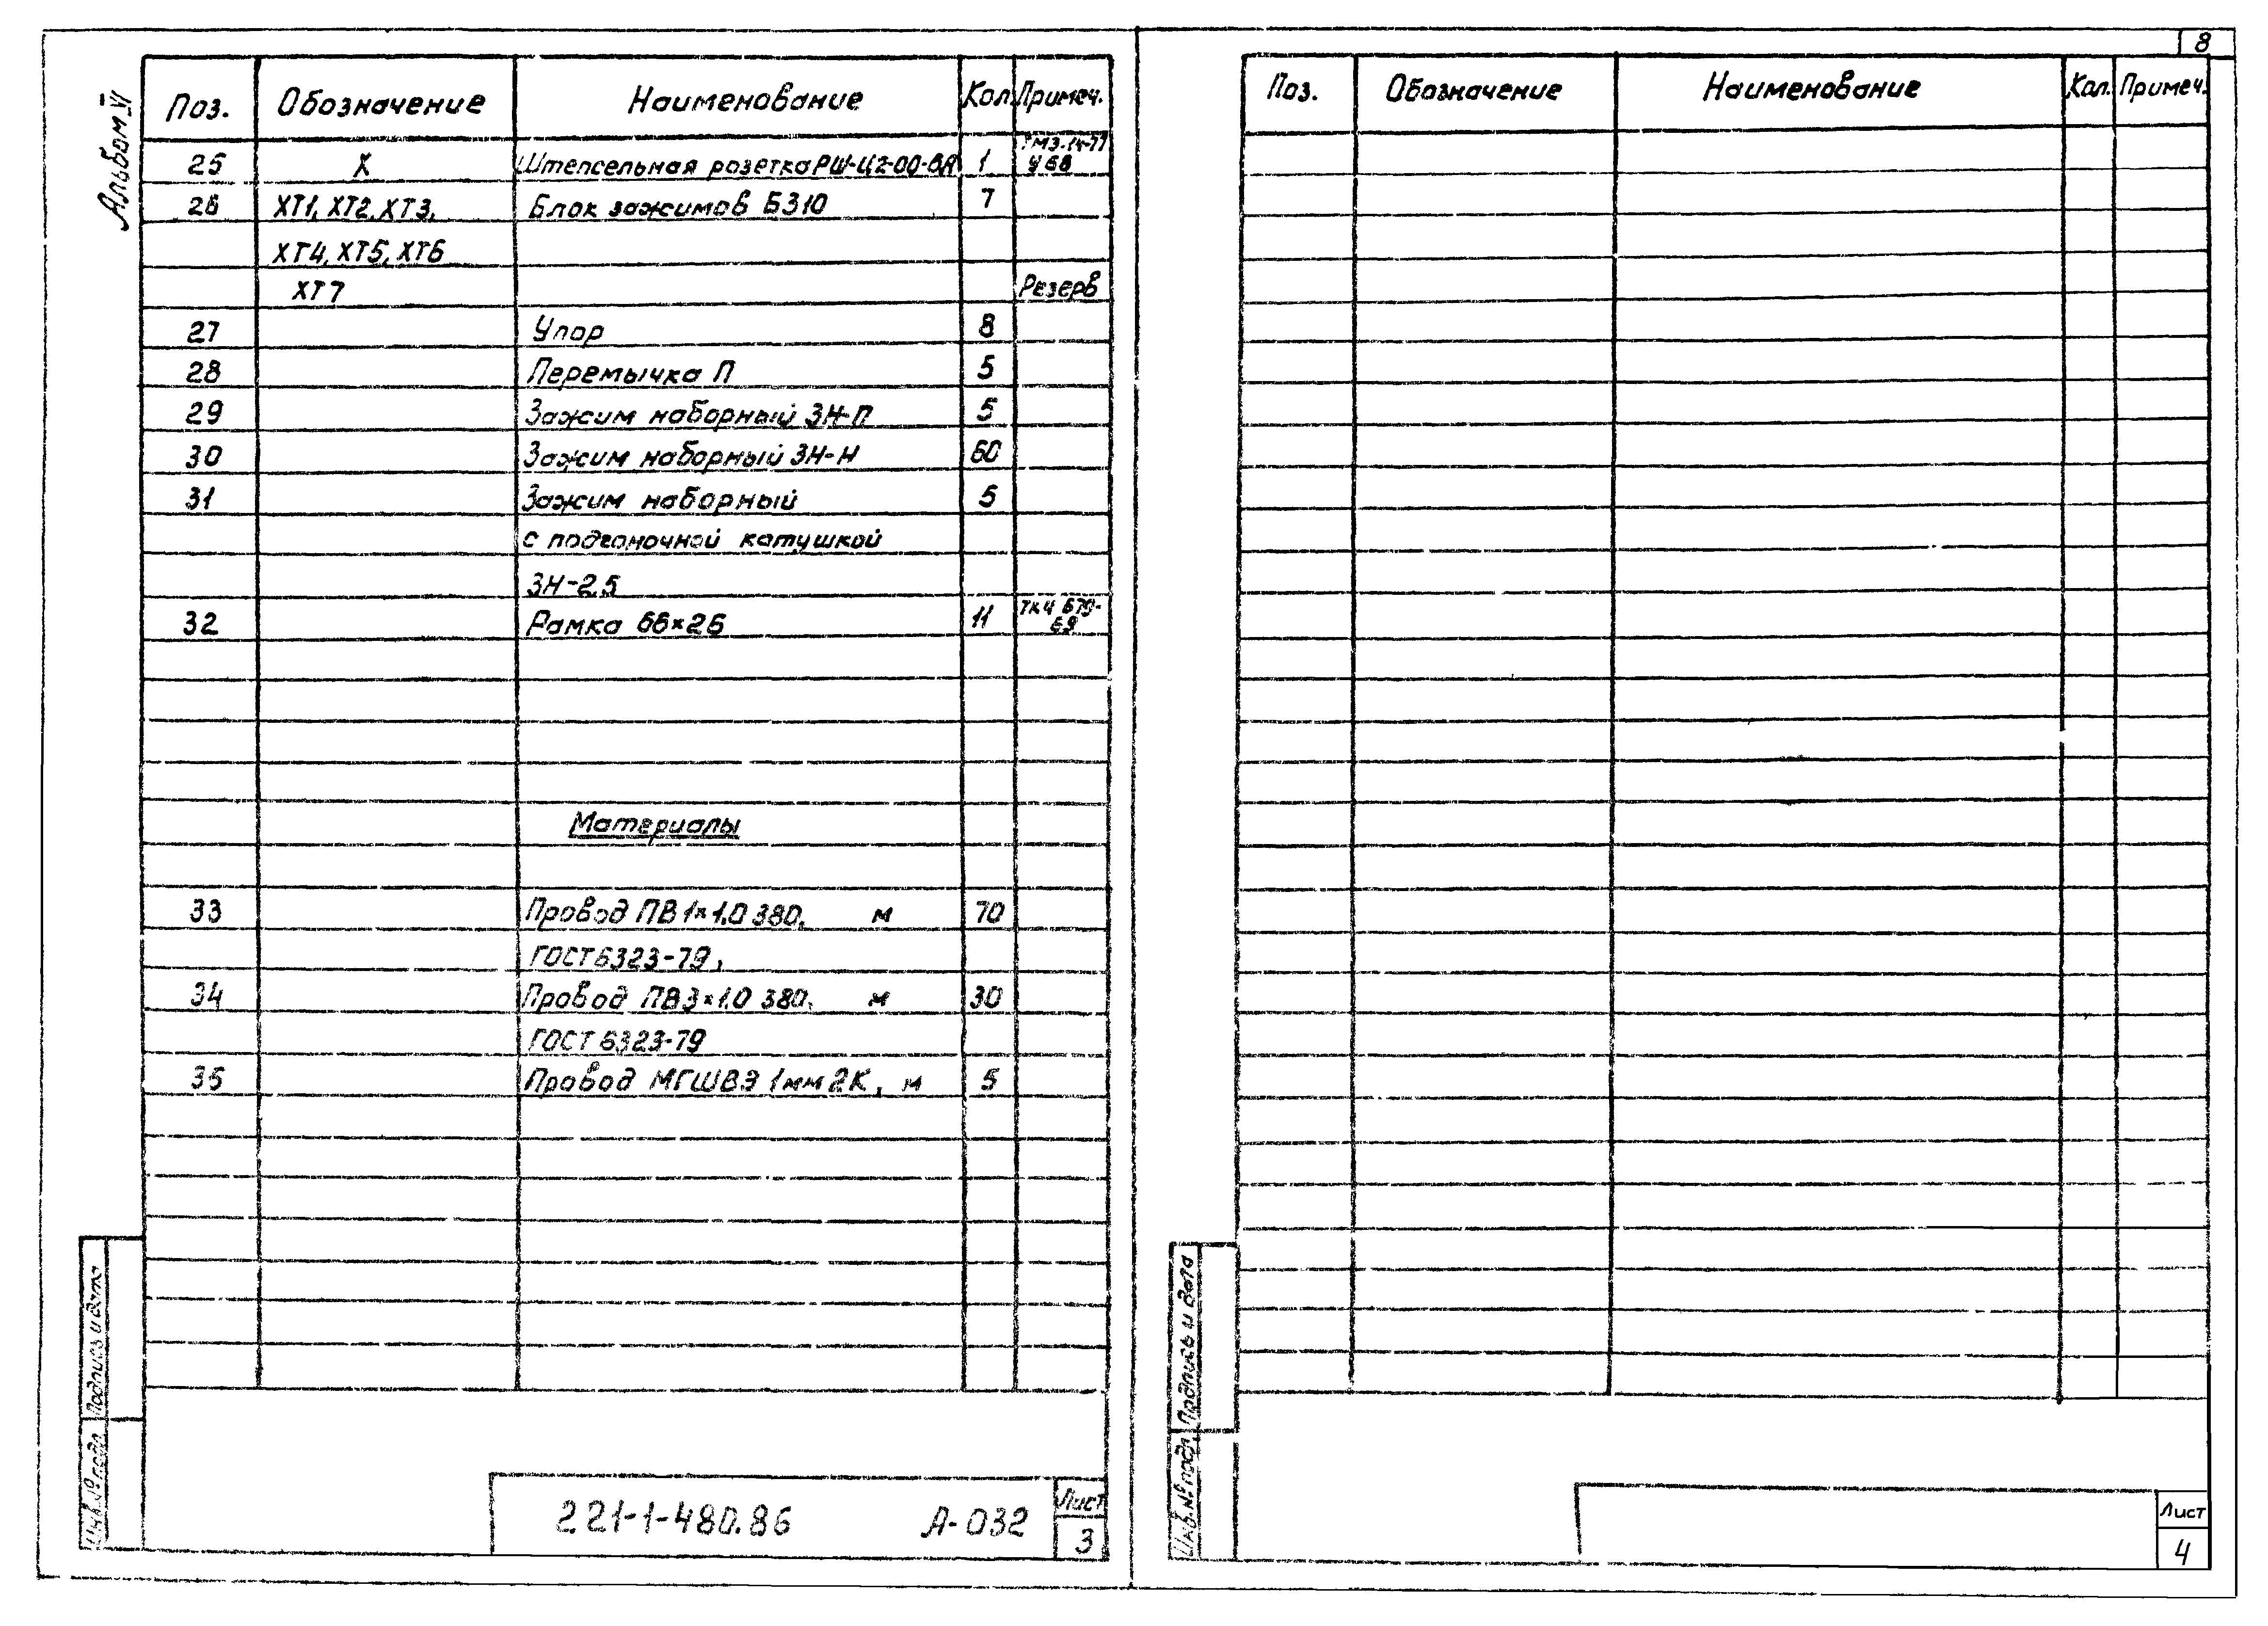 8
Альбом VI
Поз. Обозначение Наименование Кол. Примеч.
25 X Штепсельная розетка РШ-Ц2-00- 1
26 ХТ1, ХТ2, ХТ3, Блок зажимов Б310 7
ХТ4, ХТ5, ХТ6
ХТ7 Резерв
27 Упор 8
28 Перемычка П 5
29 Зажим наборный ЗН-П 5
30 Зажим наборный ЗН-Н 60
31 Зажим наборный 5
с подгоночной катушкой
ЗН-2,5
32 Рамка 66×26 11
Материалы
33 Провод ПВ1×1.0 380, м 70
ГОСТ 6323-79,
34 Провод ПВ3×1.0 380, м 30
ГОСТ 6323-79
35 Провод МГШВЭ 1мм 2К, м 5
Инв.№ подл. Подпись и дата
221-1-480.86 А-032 Лист
3
Поз. Обозначение Наименование Кол. Примеч.
Инв.№ подл. Подпись и дата
Лист
4